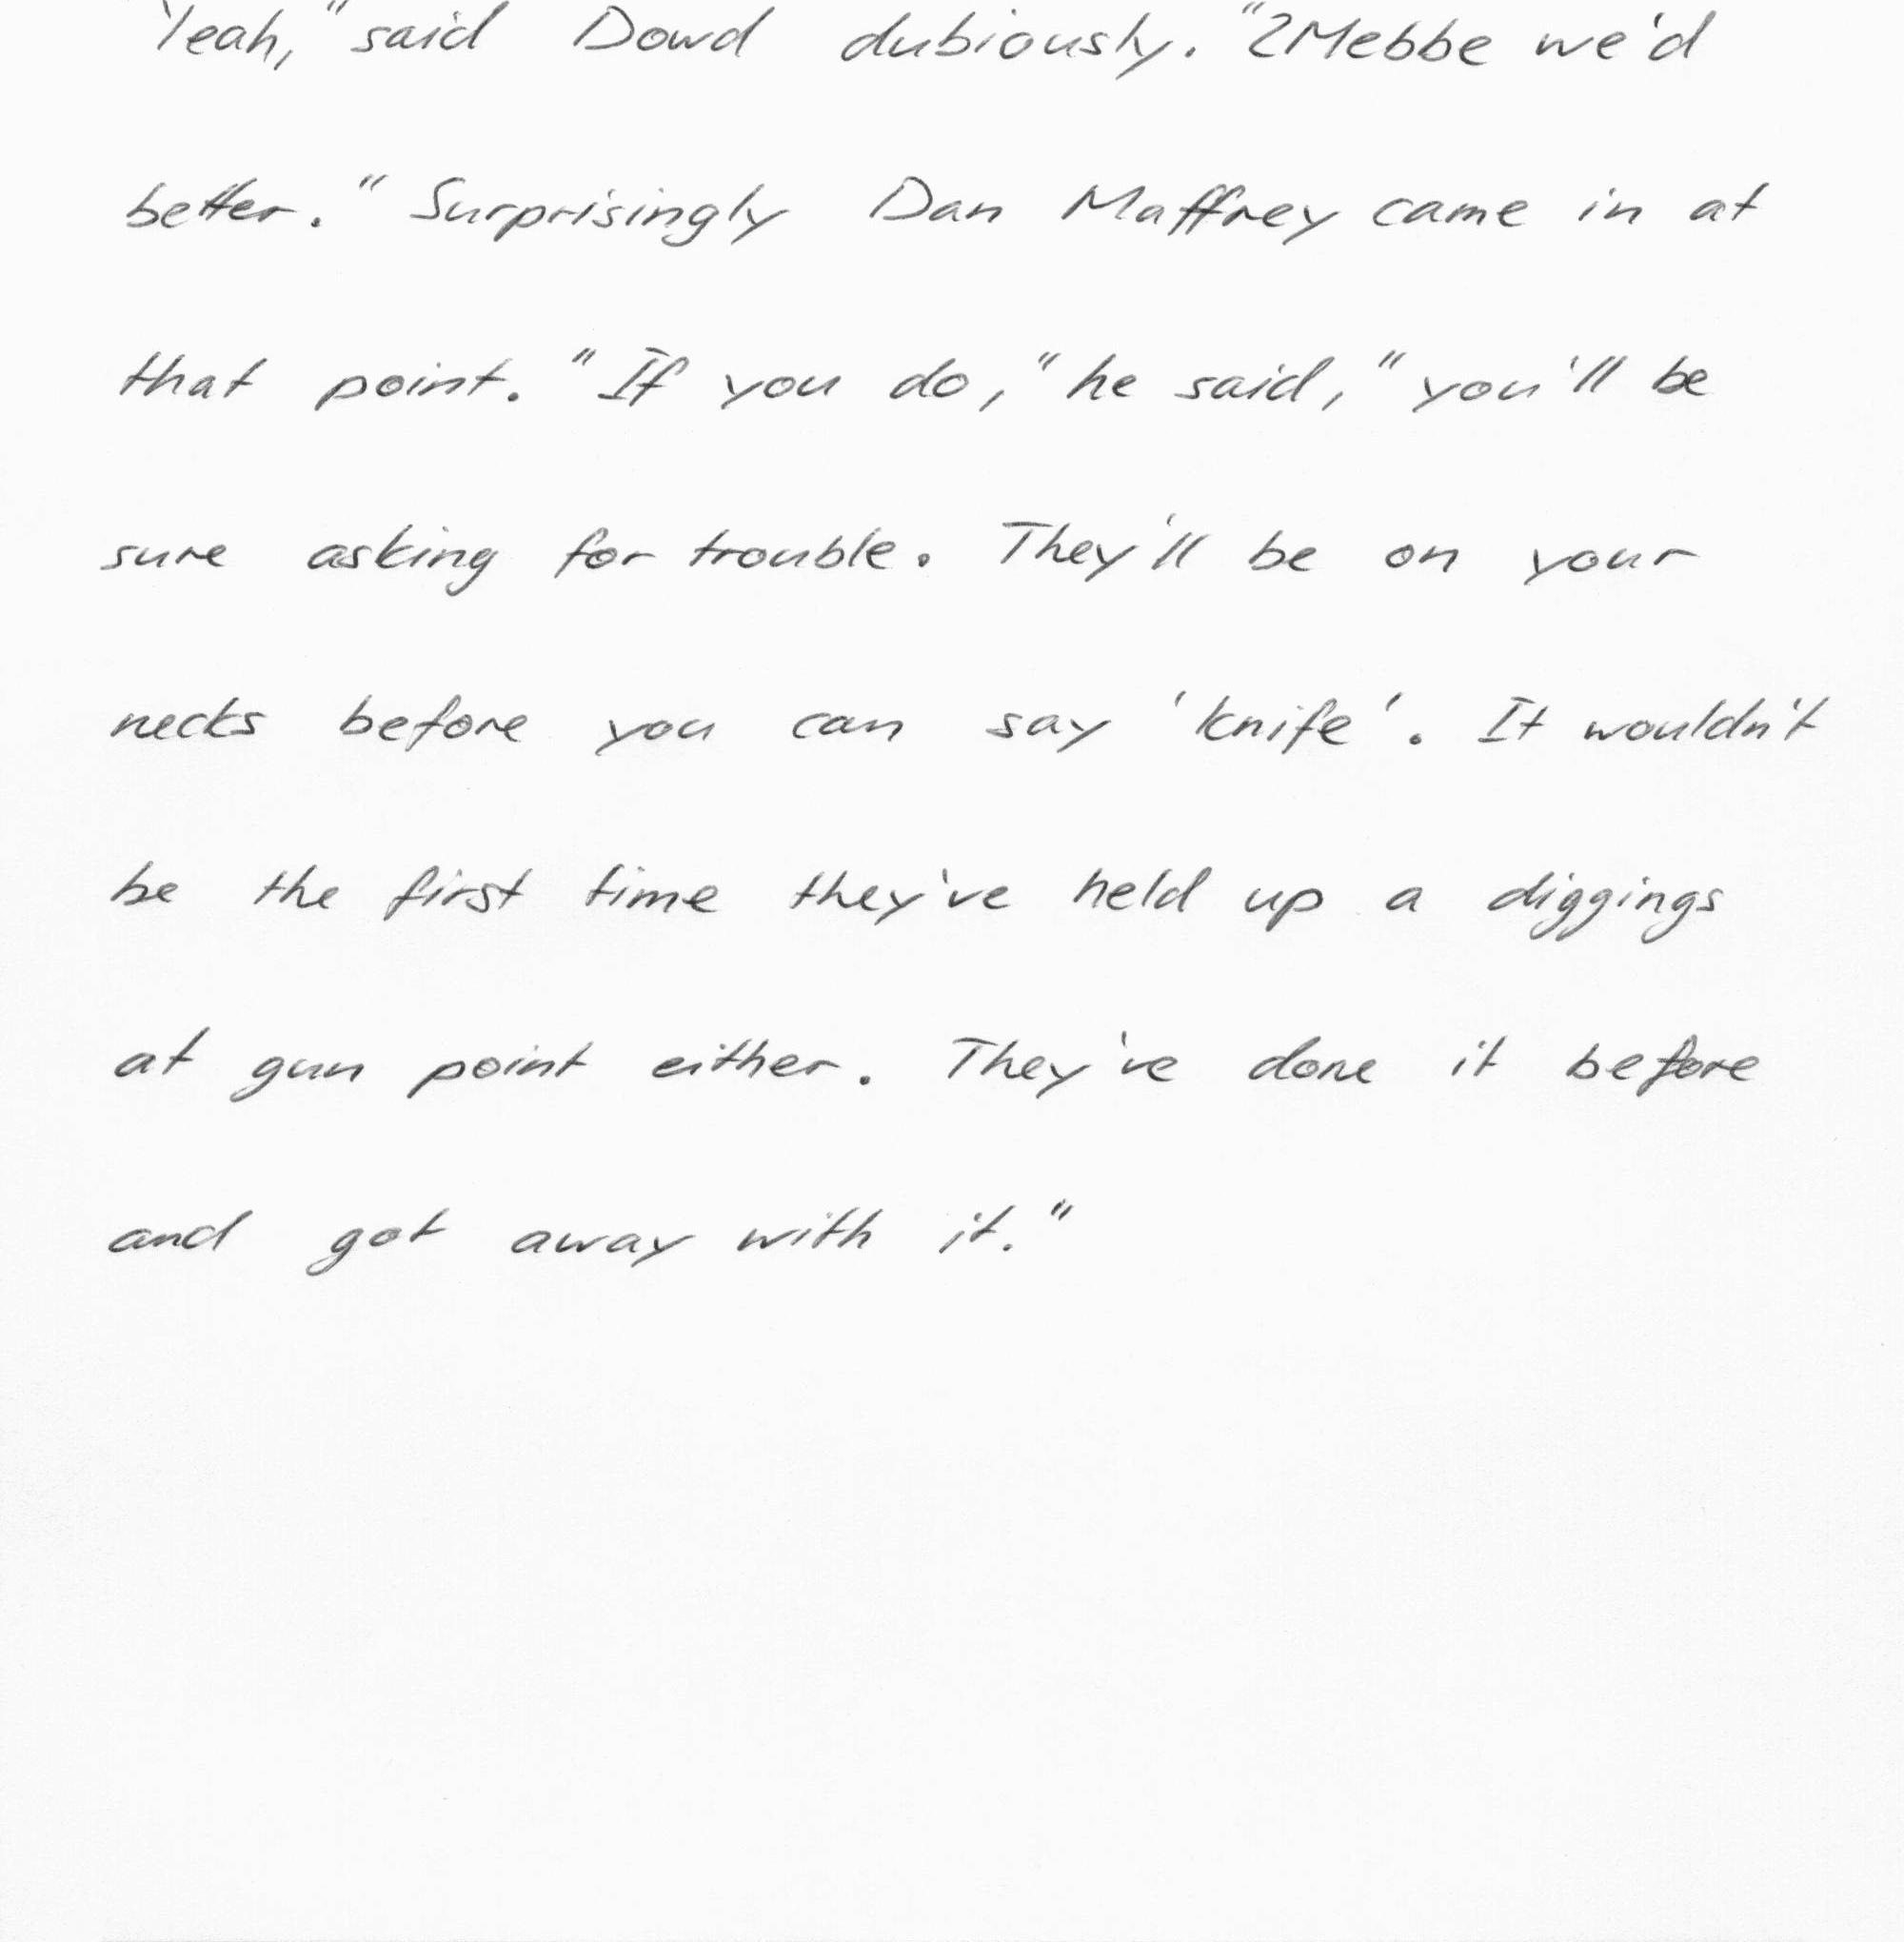 Yeah," said Dowd dubiously. "2Mebbe we'd
better." Surprisingly Dan Maffrey came in at
that point. "If you do," he said, "you'll be
sure asking for trouble. They'll be on your
necks before you can say 'knife'. It wouldn't
be the first time they've held up a diggings
at gun point either. They've done it before
and got away with it."